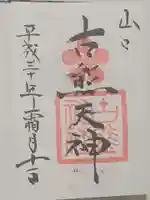 山口
古熊天神
平成三十年霜月十一日